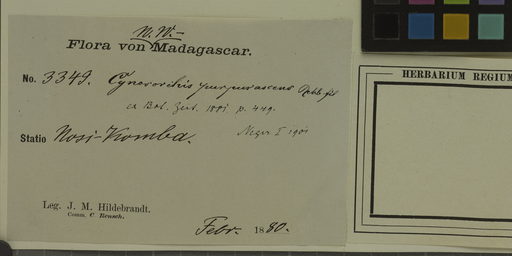 N.W.-
Flora von Madagascar.
No. 3349. Cynosorchis purpurascens Rchb. fil
ex Bot. Zeit. 1881 p. 449.
Statio Nosi-Komba.
I 1901
Leg. J. M. Hildebrandt.
Comm. C Rensch.
Febr. 1880.
HERBARIUM REGIUM